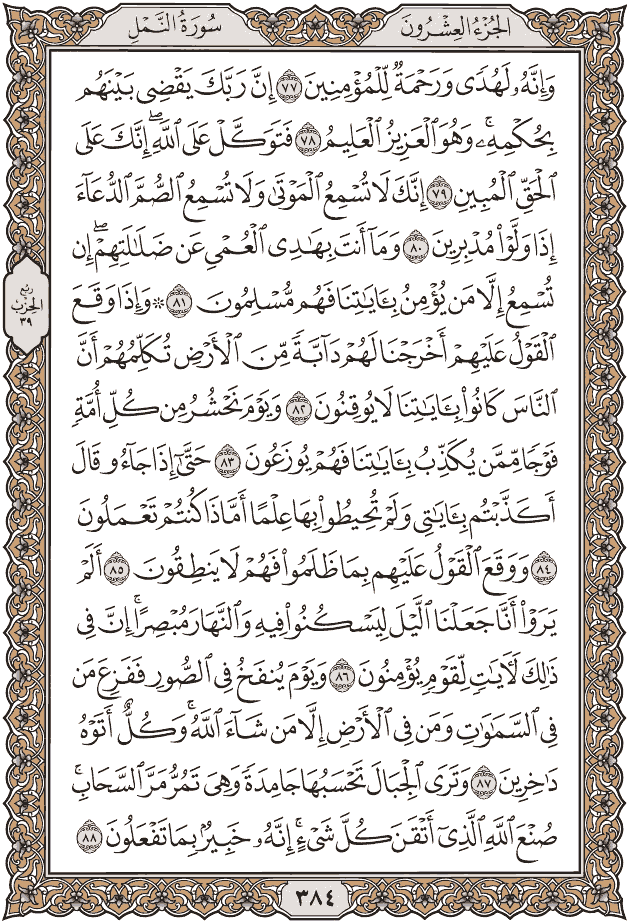 الجُزْءُ العِشْرُونَ
سُورَةُ النَّمْلِ
وَإِنَّهُۥ لَهُدًى وَرَحْمَةٌ لِّلْمُؤْمِنِينَ ٧٧ إِنَّ رَبَّكَ يَقْضِى بَيْنَهُم
بِحُكْمِهِۦۚ وَهُوَ ٱلْعَزِيزُ ٱلْعَلِيمُ ٧٨ فَتَوَكَّلْ عَلَى ٱللَّهِۖ إِنَّكَ عَلَى
ٱلْحَقِّ ٱلْمُبِينِ ٧٩ إِنَّكَ لَا تُسْمِعُ ٱلْمَوْتَىٰ وَلَا تُسْمِعُ ٱلصُّمَّ ٱلدُّعَآءَ
إِذَا وَلَّوْا۟ مُدْبِرِينَ ٨٠ وَمَآ أَنتَ بِهَٰدِى ٱلْعُمْىِ عَن ضَلَٰلَتِهِمْۖ إِن
تُسْمِعُ إِلَّا مَن يُؤْمِنُ بِـَٔايَٰتِنَا فَهُم مُّسْلِمُونَ ٨١ ۞ وَإِذَا وَقَعَ
ٱلْقَوْلُ عَلَيْهِمْ أَخْرَجْنَا لَهُمْ دَآبَّةً مِّنَ ٱلْأَرْضِ تُكَلِّمُهُمْ أَنَّ
ٱلنَّاسَ كَانُوا۟ بِـَٔايَٰتِنَا لَا يُوقِنُونَ ٨٢ وَيَوْمَ نَحْشُرُ مِن كُلِّ أُمَّةٍ
فَوْجًا مِّمَّن يُكَذِّبُ بِـَٔايَٰتِنَا فَهُمْ يُوزَعُونَ ٨٣ حَتَّىٰٓ إِذَا جَآءُو قَالَ
أَكَذَّبْتُم بِـَٔايَٰتِى وَلَمْ تُحِيطُوا۟ بِهَا عِلْمًا أَمَّاذَا كُنتُمْ تَعْمَلُونَ
٨٤ وَوَقَعَ ٱلْقَوْلُ عَلَيْهِم بِمَا ظَلَمُوا۟ فَهُمْ لَا يَنطِقُونَ ٨٥ أَلَمْ
يَرَوْا۟ أَنَّا جَعَلْنَا ٱلَّيْلَ لِيَسْكُنُوا۟ فِيهِ وَٱلنَّهَارَ مُبْصِرًاۚ إِنَّ فِى
ذَٰلِكَ لَءَايَٰتٍ لِّقَوْمٍ يُؤْمِنُونَ ٨٦ وَيَوْمَ يُنفَخُ فِى ٱلصُّورِ فَفَزِعَ مَن
فِى ٱلسَّمَٰوَٰتِ وَمَن فِى ٱلْأَرْضِ إِلَّا مَن شَآءَ ٱللَّهُۚ وَكُلٌّ أَتَوْهُ
دَٰخِرِينَ ٨٧ وَتَرَى ٱلْجِبَالَ تَحْسَبُهَا جَامِدَةً وَهِىَ تَمُرُّ مَرَّ ٱلسَّحَابِۚ
صُنْعَ ٱللَّهِ ٱلَّذِىٓ أَتْقَنَ كُلَّ شَىْءٍۚ إِنَّهُۥ خَبِيرٌۢ بِمَا تَفْعَلُونَ ٨٨
ربع
الحزب
٣٩
٣٨٤